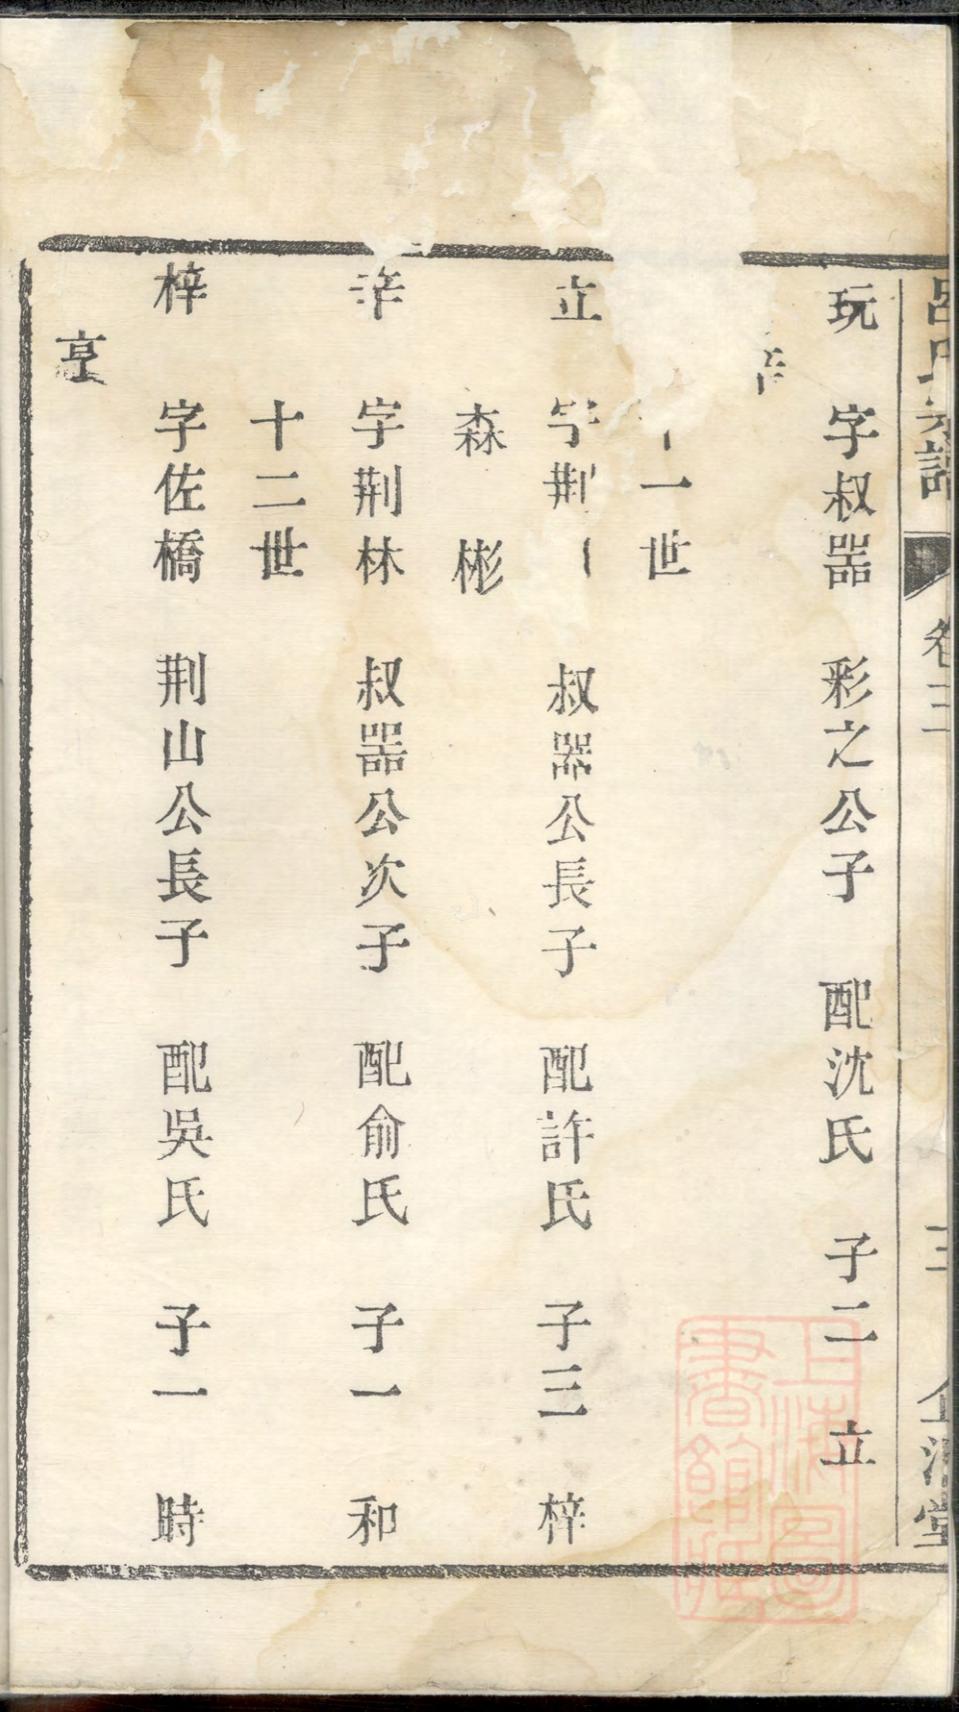 呂氏宗譜 卷三 三
玩 字叔器 彩之公子 配沈氏 子二 立
一世
立 字荆 叔器公長子 配許氏 子三 梓
森 彬
辛 字荆林 叔器公次子 配俞氏 子一 和
十二世
梓 字佐橋 荆山公長子 配吳氏 子一 時
亨
上海圖書館藏